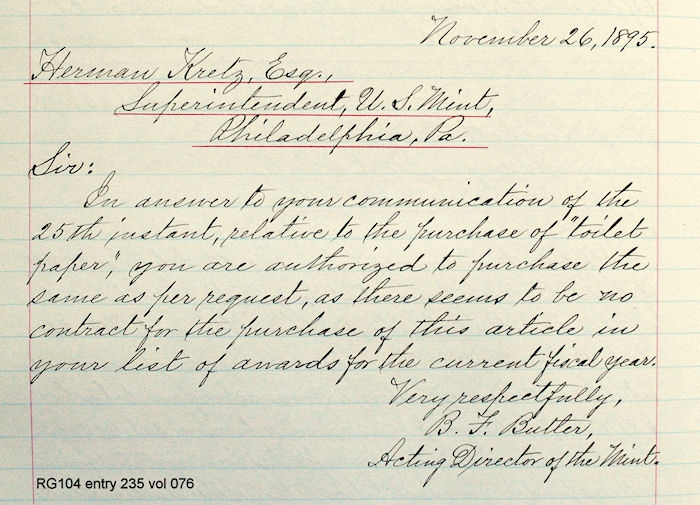 November 26, 1895.
Herman Kretz, Esq.,
Superintendent, U. S. Mint,
Philadelphia, Pa.
Sir:
In answer to your communication of the
25th instant, relative to the purchase of "toilet
paper", you are authorized to purchase the
same as per request, as there seems to be no
contract for the purchase of this article in
your list of awards for the current fiscal year.
Very respectfully,
B. F. Butler,
Acting Director of the Mint.
RG104 entry 235 vol 076